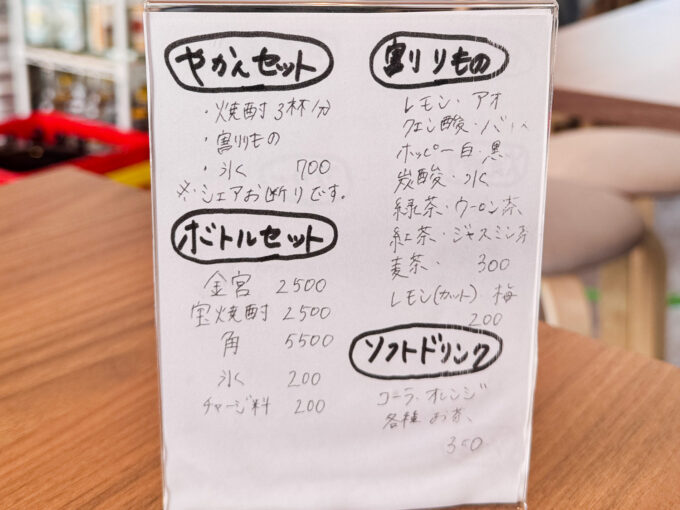 やかんセット
・焼酎3杯分
・割りもの
・氷 700
※シェアお断りです。
ボトルセット
金宮 2500
宝焼酎 2500
角 5500
氷 200
チャージ料 200
割りもの
レモン・アオ
クエン酸・
ホッピー白・黒
炭酸・水
緑茶・ウーロン茶
紅茶・ジャスミン茶
麦茶・ 300
レモン(カット)・梅
200
ソフトドリンク
コーラ・オレンジ
各種お茶、
350